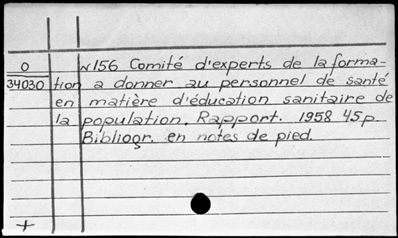 O N156 Comité d'experts de la forma-
34030 tion a donner au personnel de santé
en matière d'éducation sanitaire de
la population. Rapport. 1958 45p.
Bibliogr. en notes de pied.
+